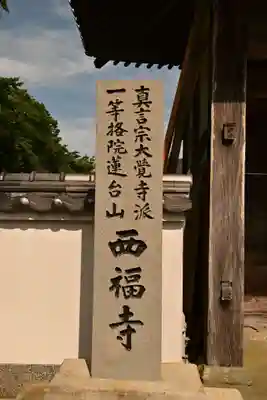 真言宗大覺寺派
一等格院蓮台山
西福寺